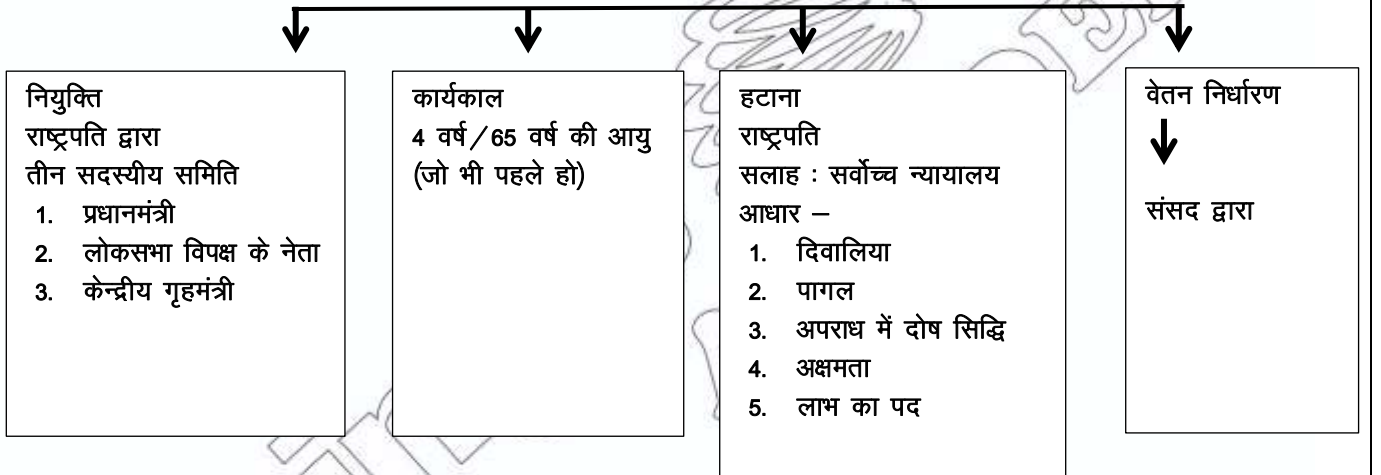 नियुक्ति
राष्ट्रपति द्वारा
तीन सदस्यीय समिति
1. प्रधानमंत्री
2. लोकसभा विपक्ष के नेता
3. केन्द्रीय गृहमंत्री
कार्यकाल
4 वर्ष/65 वर्ष की आयु
(जो भी पहले हो)
हटाना
राष्ट्रपति
सलाह : सर्वोच्च न्यायालय
आधार –
1. दिवालिया
2. पागल
3. अपराध में दोष सिद्धि
4. अक्षमता
5. लाभ का पद
वेतन निर्धारण
संसद द्वारा